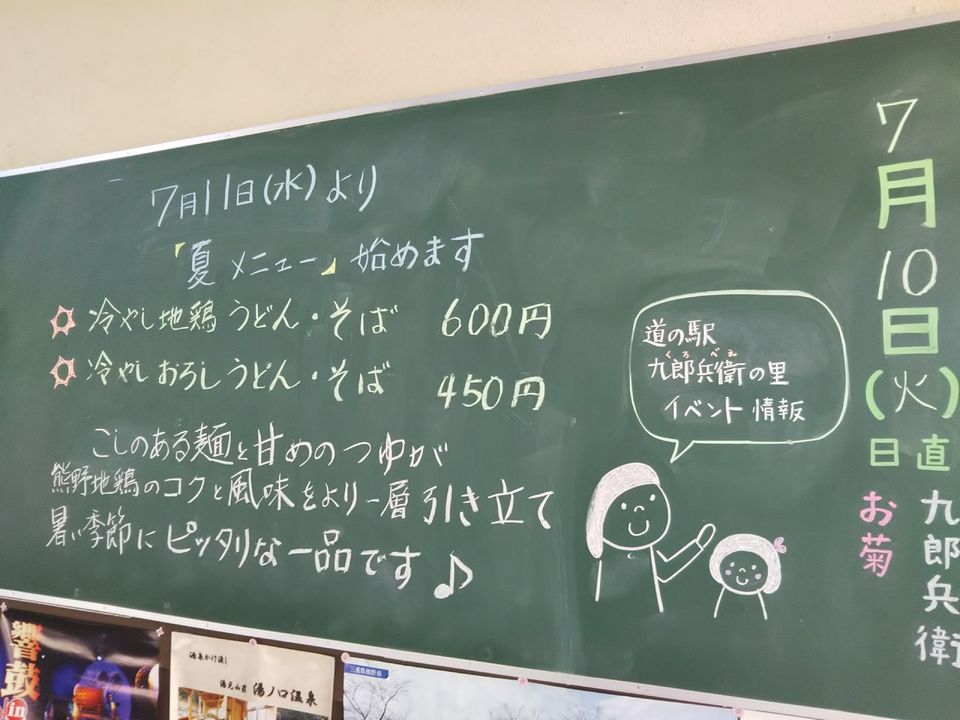 7月11日(水)より
「夏メニュー」始めます
冷やし地鶏うどん・そば 600円
冷やしおろしうどん・そば 450円
こしのある麺と甘めのつゆが
熊野地鶏のコクと風味をより一層引き立て
暑い季節にピッタリな一品です♪
道の駅
くろべえ
九郎兵衛の里
イベント情報
7月10日(火)
日直
九郎兵衛
お菊
響鼓
in
湯泉かけ流し
湯元山荘 湯ノ口温泉
三重県熊野市